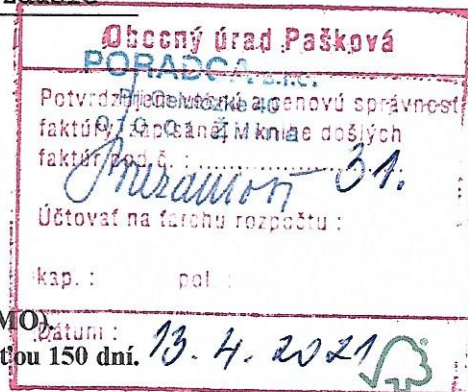 Obecný úrad Pašková
PORADCA s.r.o.
Potvrdzujeme vecnú a cenovú správnosť
faktúry zapísanej v knihe došlých
faktúr pod č. : 31.
Účtovať na ťarchu rozpočtu :
kap. : pol :
MO).
Dátum : 13. 4. 2021
ťou 150 dní.